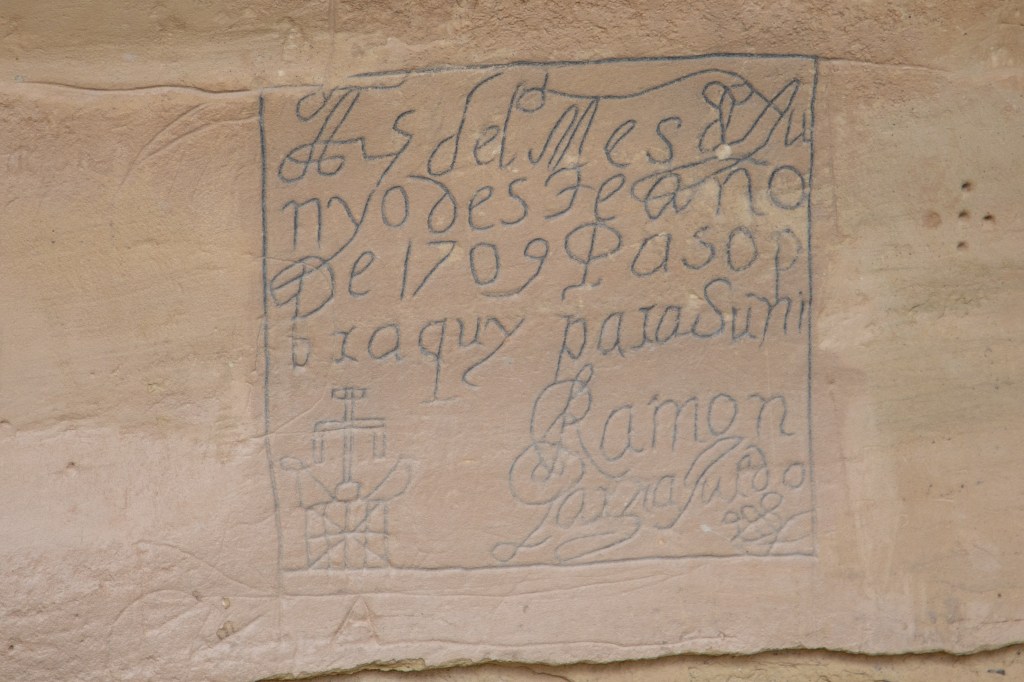 A 25 del Mes d Ju
nyo deste año
De 1709 Paso p
or aquy para Suni
Ramon
Garzia Jurado
A